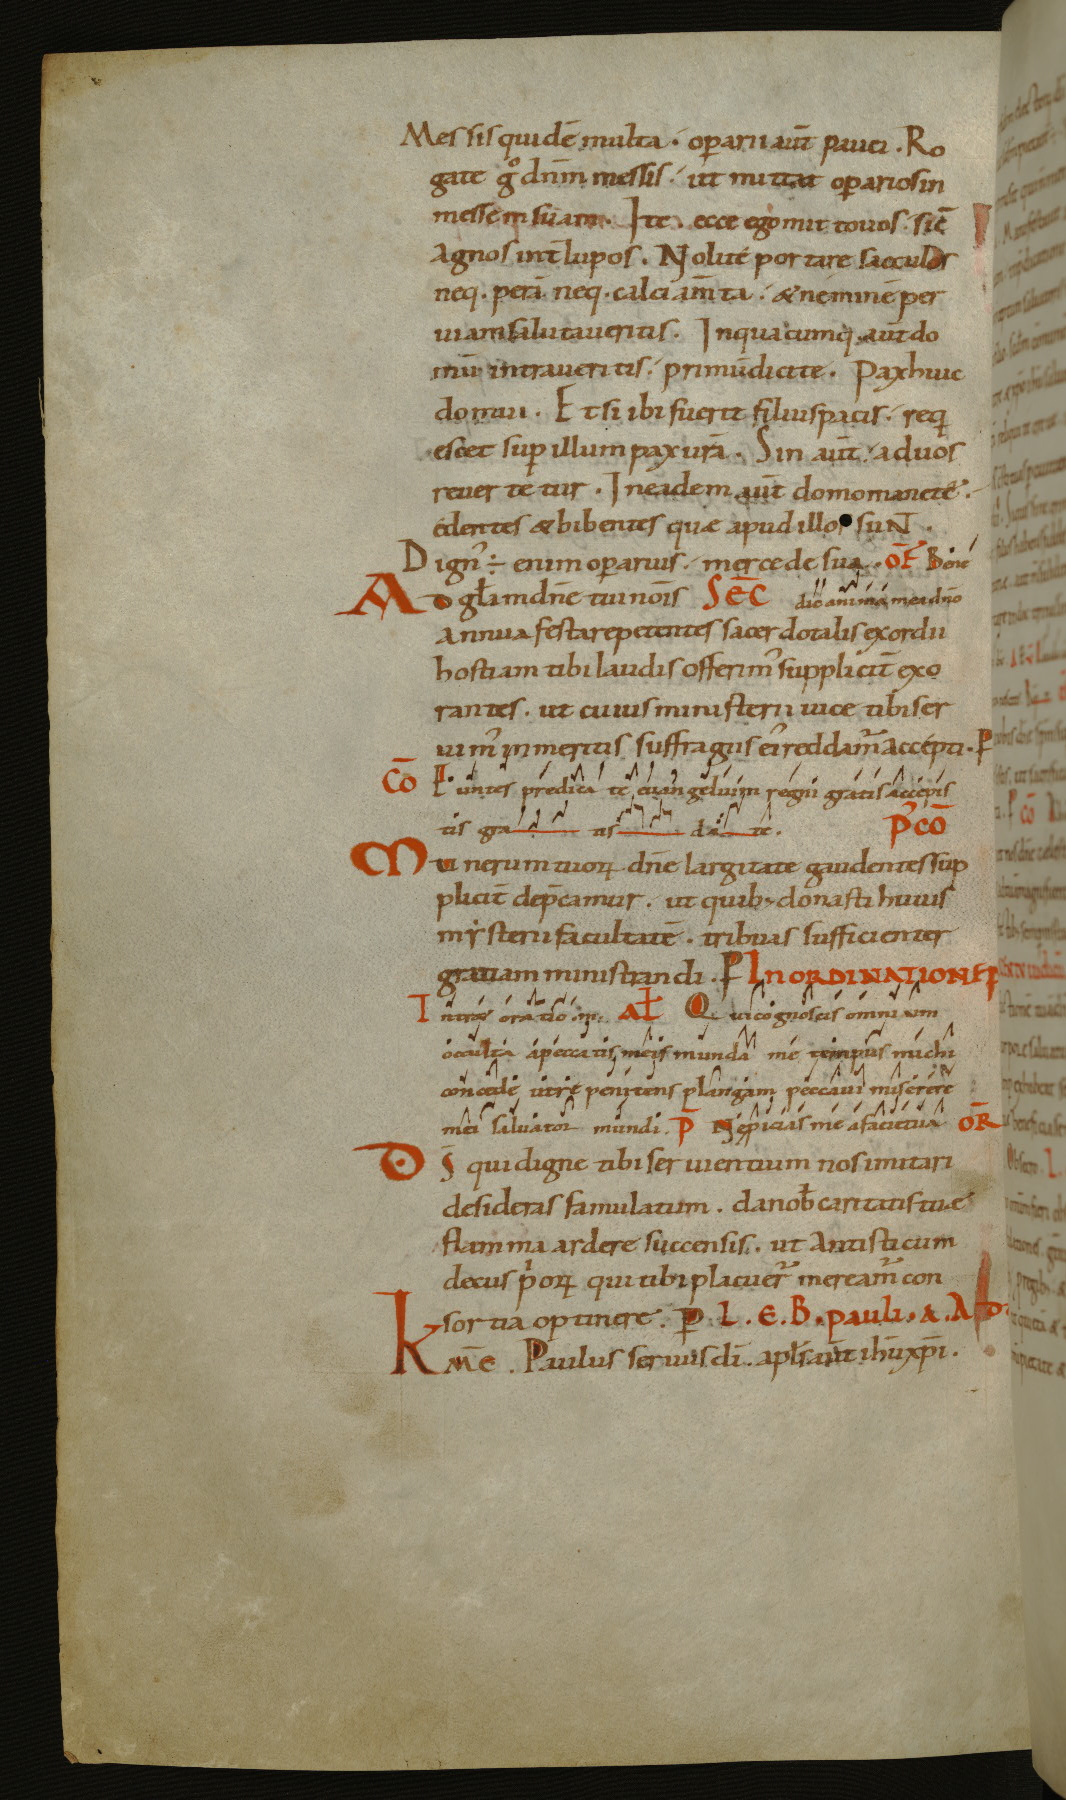 Messis quidē multa . operarii aut̄ pauci . Ro
gate g̊ dn̄m messis . ut mittat operarios in
messem suam . Ite . ecce ego mitto vos . sic̄
Agnos int̄ lupos . Nolite portare sacculos
neq . perā . neq . calciam̄ta . & neminē per
viam salutaveritis . In quacumq . aut̄ do
mū intraveritis . primū dicite . Pax huic
domui . Et si ibi fuerit filius pacis . req
escet sup illum pax urā . Sin aut̄ . ad vos
revertetur . In eadem aut̄ domo manete .
edentes & bibentes quae apud illos suN .
Dign' ÷ enim operarius . mercede sua . OF̄ Bene
AD gl̄am dn̄e tui nōis SEC̄ dic anima mea dn̄o
Annua festa repetentes sacerdotalis exordii
hostiam tibi laudis offerim' supplicit̄ exo
rantes . ut cuius ministerii vice tibi ser
vim' inmeritis suffragiis ei' reddam̄ accepti . P
CŌ Euntes predicate evangelium regni gratis accepis
tis gra tis da te . P' CŌ
Munerum tuorꝝ dn̄e largitate gaudentes sup
plicit̄ dep̄camur . ut quib; donasti huius
mẏsterii facultatē . tribuas sufficienter
gratiam ministrandi . P IN ORDINATIONE P
Intret oratio m̄ . AL̄ Qui cognoscis omnium
occulta a peccatis meis munda me tempus michi
concede ut repenitens plangam peccavi miserere
mei salvator mundi . P̄ Ne p̄icias me a facie tua OR̄
DS̄ qui digne tibi servientium nos imitari
desideras famulatum . da nob̄ caritatis tuae
flamma ardere succensis . ut Antisticum
decus p'orꝝ qui tibi placuer̄ mereām con
sortia optinere . P L . E . B . pauli . A . AP
KME̅ . Paulus servus dī . apl̄s aut̄ ihū xp̄i .